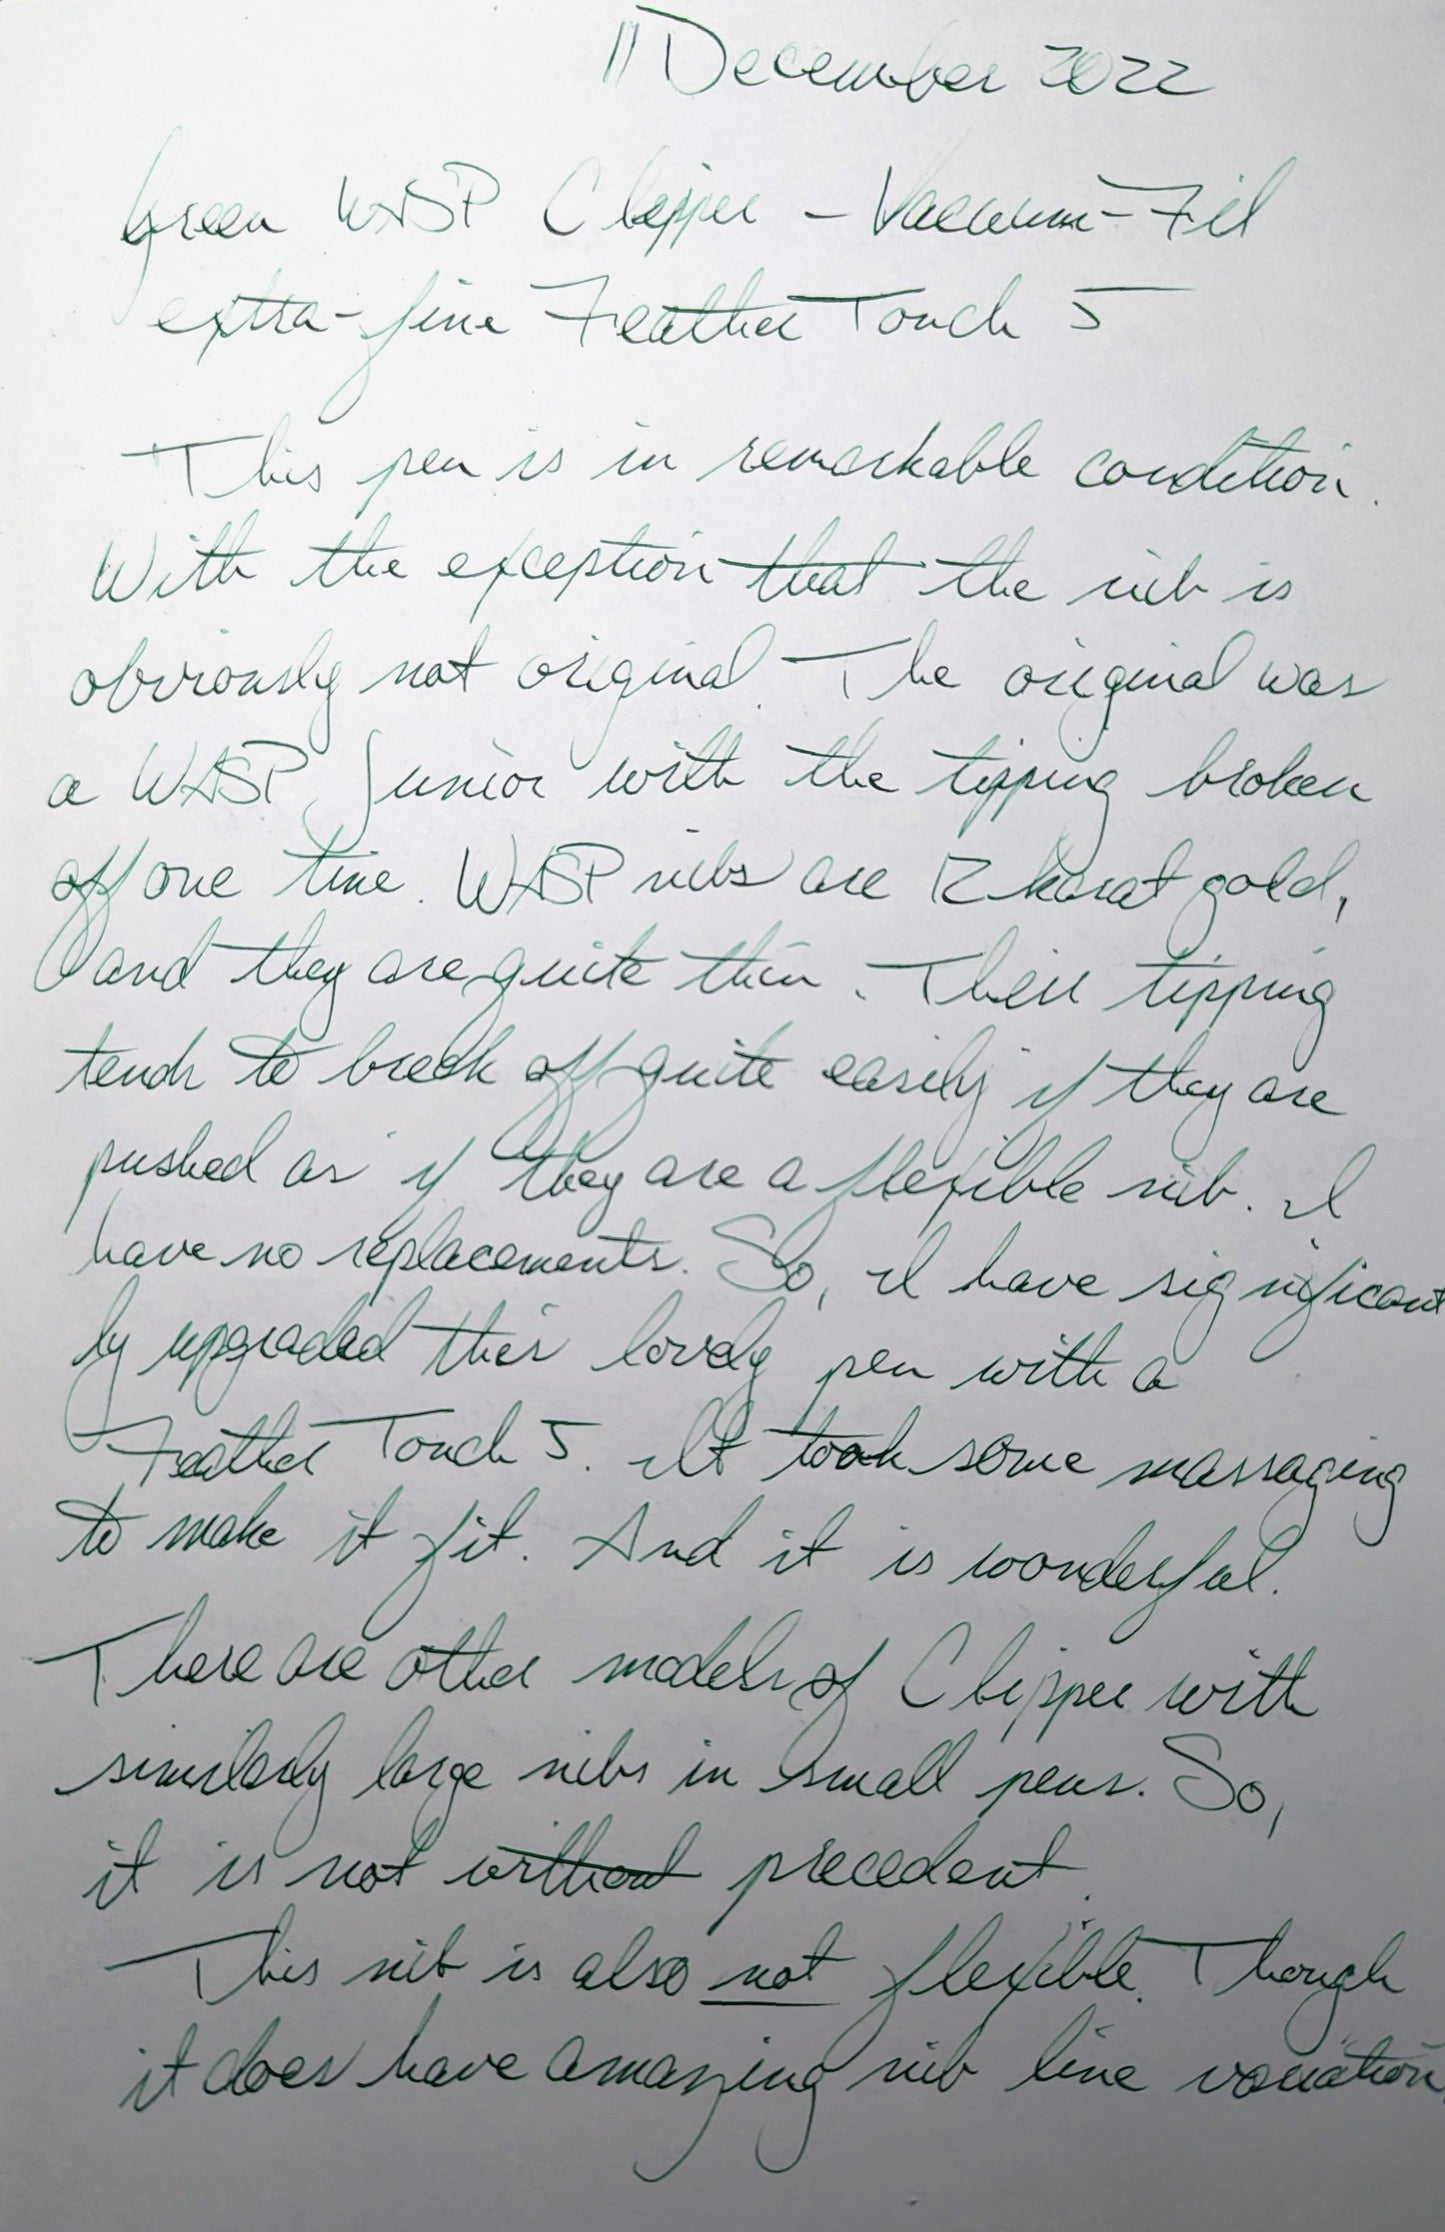 11 December 2022
Green WASP Clipper - Vacuum-Fil
extra-fine Feather Touch 5
This pen is in remarkable condition.
With the exception that the nib is
obviously not original. The original was
a WASP Junior with the tipping broken
off one tine. WASP nibs are 12 karat gold,
and they are quite thin. Their tipping
tends to break off quite easily if they are
pushed as if they are a flexible nib. I
have no replacements. So, I have significant
ly upgraded this lovely pen with a
Feather Touch 5. It took some massaging
to make it fit. And it is wonderful.
There are other models of Clipper with
similarly large nibs in small pens. So,
it is not without precedent.
This nib is also not flexible. Though
it does have amazing nib line variation.